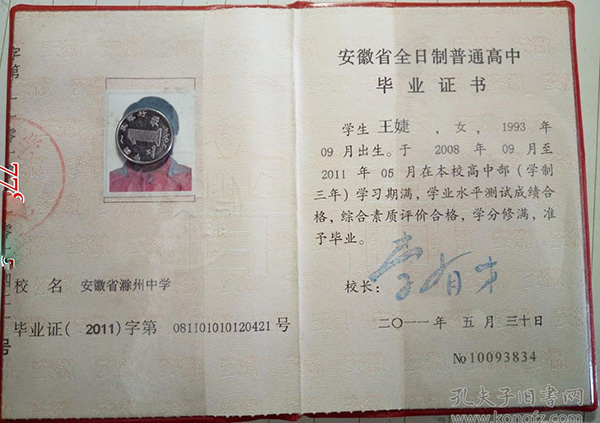 安徽省全日制普通高中
毕业证书
学生 王婕 ，女，1993 年
09 月出生。于 2008 年 09 月至
2011 年 05 月在本校高中部（学制
三年）学习期满，学业水平测试成绩合
格，综合素质评价合格，学分修满，准
予毕业。
校长：李有才
二〇一一年 五 月 三十日
No10093834
校 名 安徽省滁州中学
毕业证（ 2011）字第 081101010120421 号
孔夫子旧书网
www.kongfz.com